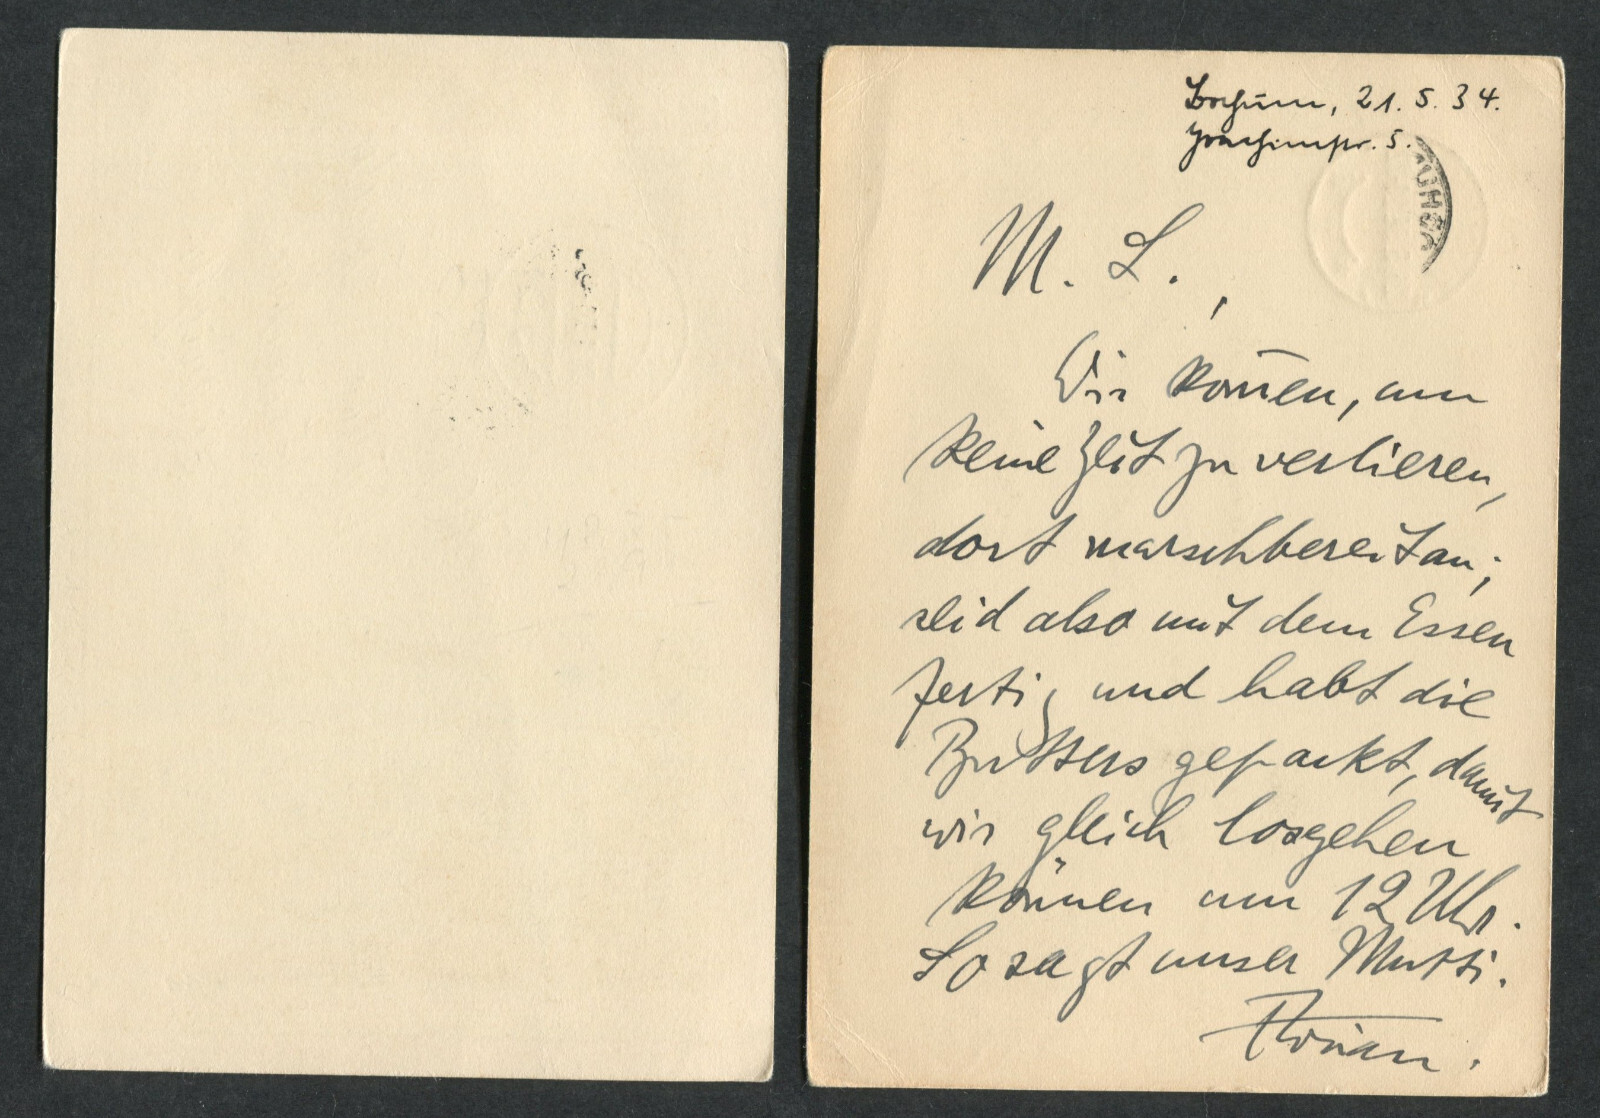 Bochum, 21. 5. 34.
Joachimstr. 5.
M. L.,
Wir kom̄en, um
keine Zeit zu verlieren,
dort marschbereit an;
seid also mit dem Essen
fertig und habt die
Butters gepackt, damit
wir gleich losgehen
können um 12 Uhr.
So sagt unser Mutti.
Florian.